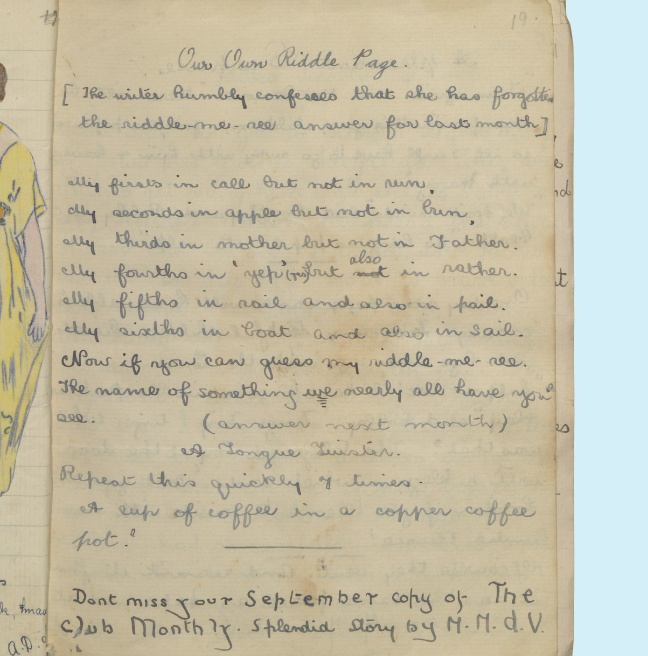 19.
Our Own Riddle Page.
[ The writer humbly confesses that she has forgotten
the riddle-me-ree answer for last month]
My firsts in call but not in run,
My seconds in apple but not in bun,
My thirds in mother but not in Father.
My fourths in 'yep' but also not in rather.
My fifths in rail and also in pail.
My sixths in boat and also in sail.
Now if you can guess my riddle-me-ree.
The name of something we nearly all have you'll
see. (answer next month)
A Tongue Twister.
Repeat this quickly 7 times.
A cup of coffee in a copper coffee
pot.
Dont miss your September copy of The
Club Monthly. Splendid Story by M.M.d.V.
A.D.